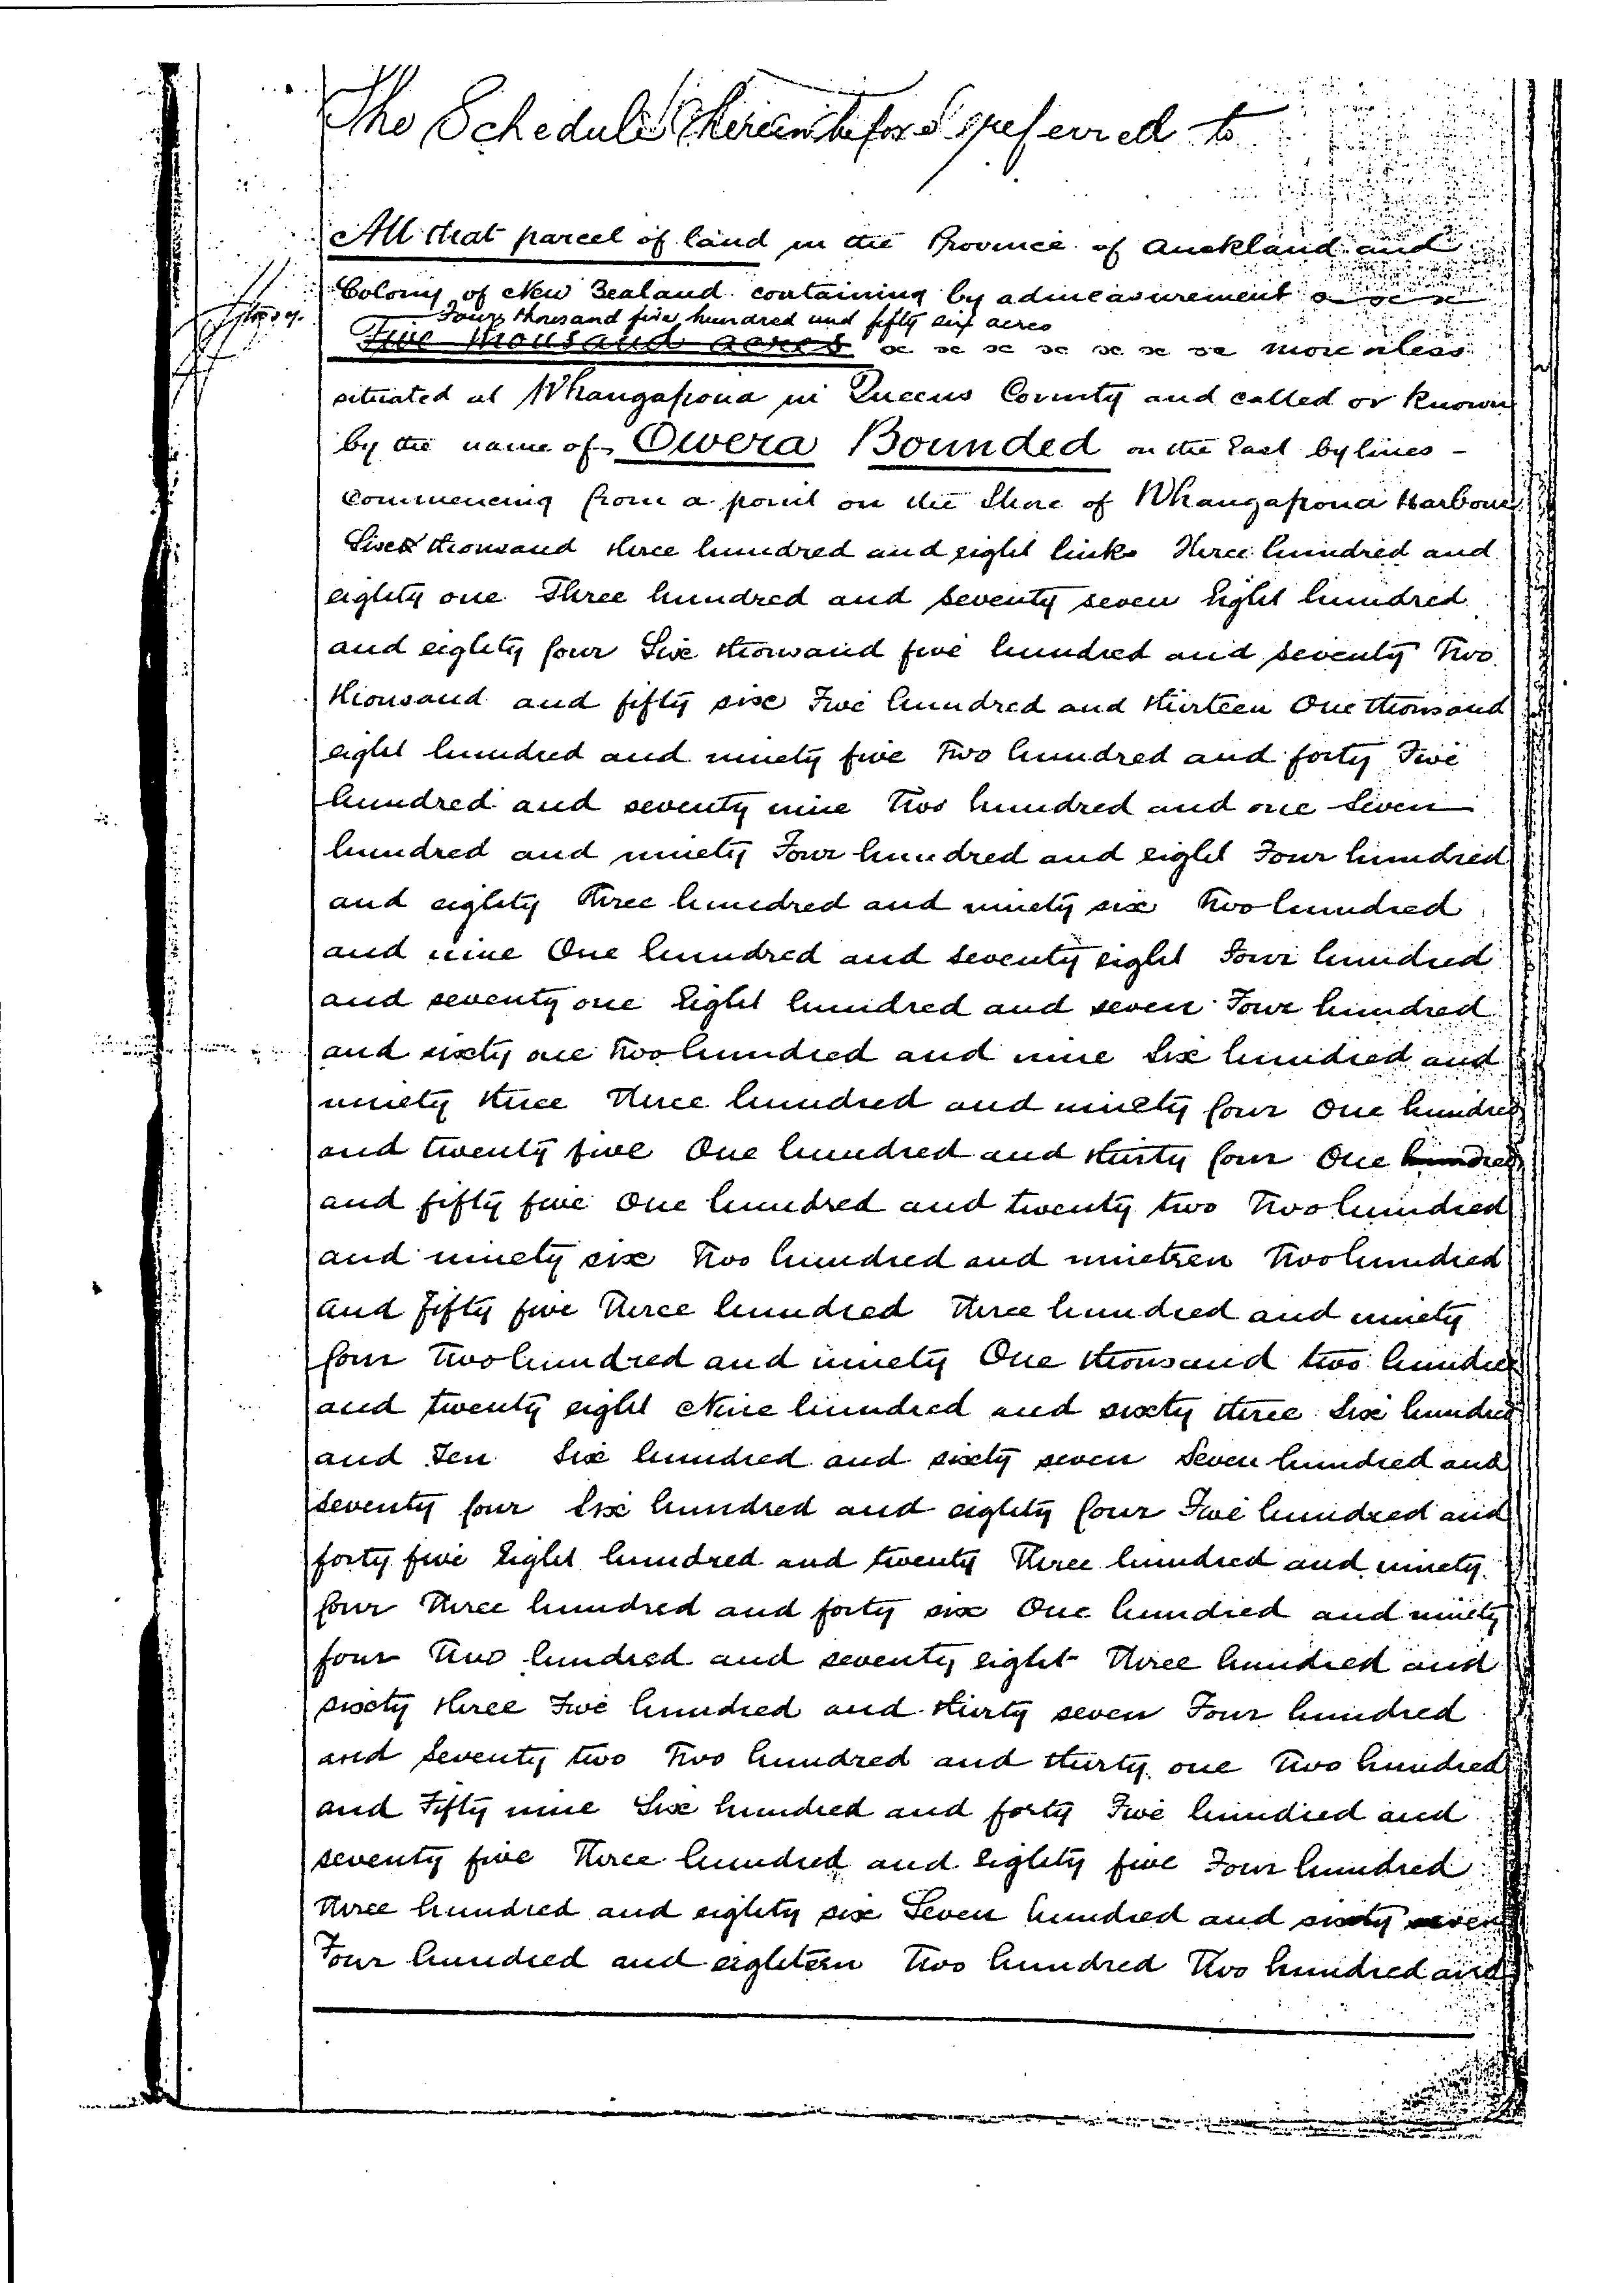 The Schedule hereinbefore referred to
All that parcel of land in the Province of Auckland and
Colony of New Zealand containing by admeasurement
Four thousand five hundred and fifty six acres
Five thousand acres more or less
situated at Whangapoua in Queens County and called or known
by the name of Owera Bounded on the East by lines -
commencing from a point on the Shore of Whangapoua Harbour
Sixes thousand three hundred and eight links Three hundred and
eighty one Three hundred and seventy seven Eight hundred
and eighty four Six thousand five hundred and seventy Two
thousand and fifty six Five hundred and thirteen One thousand
eight hundred and ninety five Two hundred and forty Five
hundred and seventy nine Two hundred and one Seven
hundred and ninety Four hundred and eight Four hundred
and eighty Three hundred and ninety six Two hundred
and nine One hundred and seventy eight Four hundred
and seventy one Eight hundred and seven Four hundred
and sixty one Two hundred and nine Six hundred and
ninety three Three hundred and ninety four One hundred
and twenty five One hundred and thirty four One hundred
and fifty five One hundred and twenty two Two hundred
and ninety six Two hundred and nineteen Two hundred
and fifty five Three hundred Three hundred and ninety
four Two hundred and ninety One thousand two hundred
and twenty eight Nine hundred and sixty three Six hundred
and Ten Six hundred and sixty seven Seven hundred and
seventy four Six hundred and eighty four Five hundred and
forty five Eight hundred and twenty Three hundred and ninety
four Three hundred and forty six One hundred and ninety
four Two hundred and seventy eight Three hundred and
sixty three Five hundred and thirty seven Four hundred
and seventy two Two hundred and thirty one Two hundred
and Fifty nine Six hundred and forty Five hundred and
seventy five Three hundred and Eighty five Four hundred
Three hundred and eighty six Seven hundred and sixty seven
Four hundred and eighteen Two hundred Two hundred and